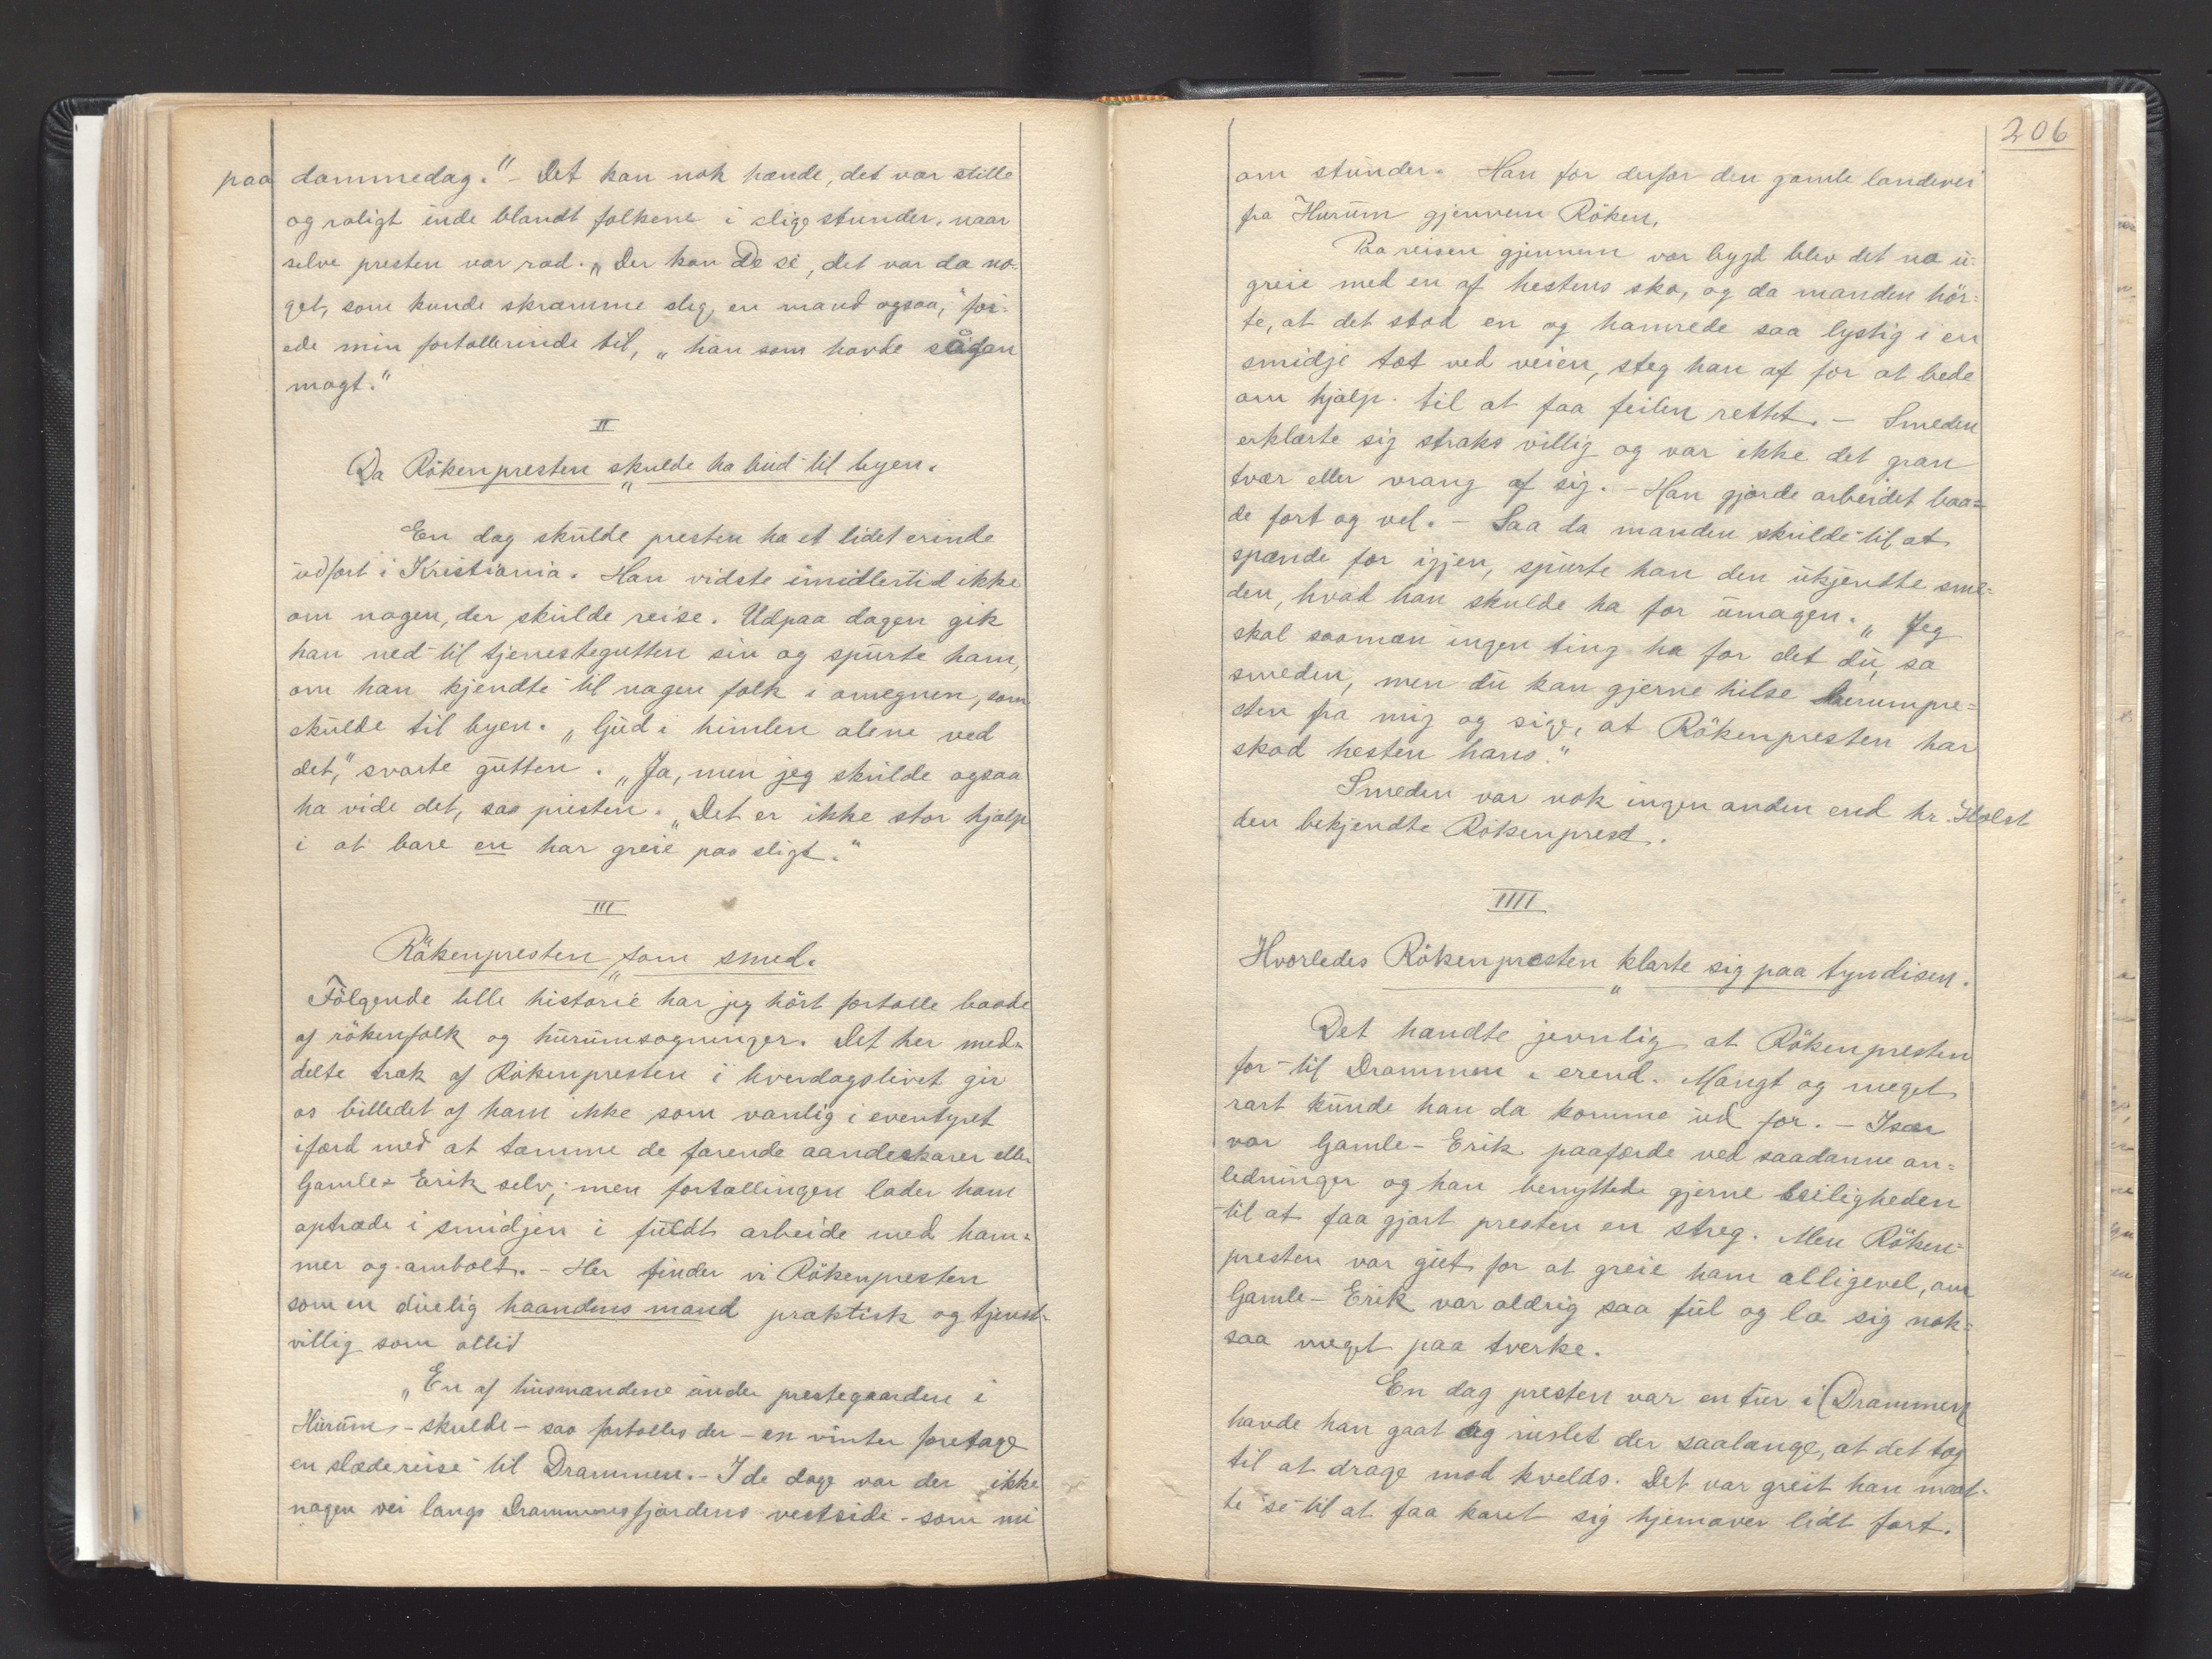 paa dommedag." - Det kan nok hænde, det var stille
og roligt inde blandt folkene i slige stunder, naar
selve presten var ræd. „Der kan De se, det var da no-
get, som kunde skræmme slig en mand ogsaa," föi-
ede min fortællerinde til, „han som havde sågan
magt."
II
Da Rökenpresten skulde ha bud til byen.
En dag skulde presten ha et lidet erinde
udfört i Kristiania. Han vidste imidlertid ikke
om nogen, der skulde reise. Udpaa dagen gik
han ned til tjenestegutten sin og spurte ham,
om han kjendte til nogen folk i omegnen, som
skulde til byen. „Gud i himlen alene ved
det," svarte gutten. „Ja, men jeg skulde ogsaa
ha vide det, saa presten. „Det er ikke stor hjælp
i at bare en har greie paa sligt."
III
Rökenpresten som smed.
Fölgende lille historie har jeg hört fortælle baade
af rökenfolk og hurumsogninger. Det her med-
delte træk af Rökenpresten i hverdagslivet gir
os billedet af ham ikke som vanlig i eventyret
ifærd med at tæmme de farende aandeskarer eller
Gamle-Erik selv; men fortællingen lader ham
optræde i smidjen i fuldt arbeide med ham-
mer og ambolt. - Her finder vi Rökenpresten
som en duelig haandens mand praktisk og tjenst-
villig som altid
„En af husmændene under prestegaarden i
Hurum - skulde - saa fortælles der - en vinter foretage
en slædereise til Drammen. - I de dage var der ikke
nogen vei langs Drammensfjordens vestside - som nu
206
om stunder. Han for derfor den gamle landevei
fra Hurum gjennem Röken.
Paa reisen gjennem vor bygd blev det no u-
greie med en af hestens sko, og da manden hör-
te, at det stod en og hamrede saa lystig i en
smidje tæt ved veien, steg han af for at bede
om hjælp til at faa feilen rettet. - Smeden
erklærte sig straks villig og var ikke det gran
tvær eller vrang af sig. - Han gjorde arbeidet baa-
de fort og vel. - Saa da manden skulde til at
spænde for igjen, spurte han den ukjendte sme-
den, hvad han skulde ha for umagen. „Jeg
skal saamæn ingen ting ha for det du, sa
smeden, men du kan gjerne hilse Hurumpre-
sten fra mig og sige, at Rökenpresten har
skod hesten hans."
Smeden var nok ingen anden end hr. Holst
den bekjendte Rökenprest.
IIII
Hvorledes Rökenpresten klarte sig paa tyndisen.
Det hændte jevnlig at Rökenpresten
for til Drammen i erend. Mangt og meget
rart kunde han da komme ud for. - Især
var Gamle-Erik paafærde ved saadanne an-
ledninger og han benyttede gjerne leiligheden
til at faa gjort presten en streg. Men Röken-
presten var gut for at greie ham alligevel, om
Gamle-Erik var aldrig saa ful og la sig nok-
saa meget paa tverke.
En dag presten var en tur i Drammen
havde han gaat og ruslet der saalænge, at det tog
til at drage mod kvelds. Det var greit han maat-
te se til at faa karet sig hjemover lidt fort.